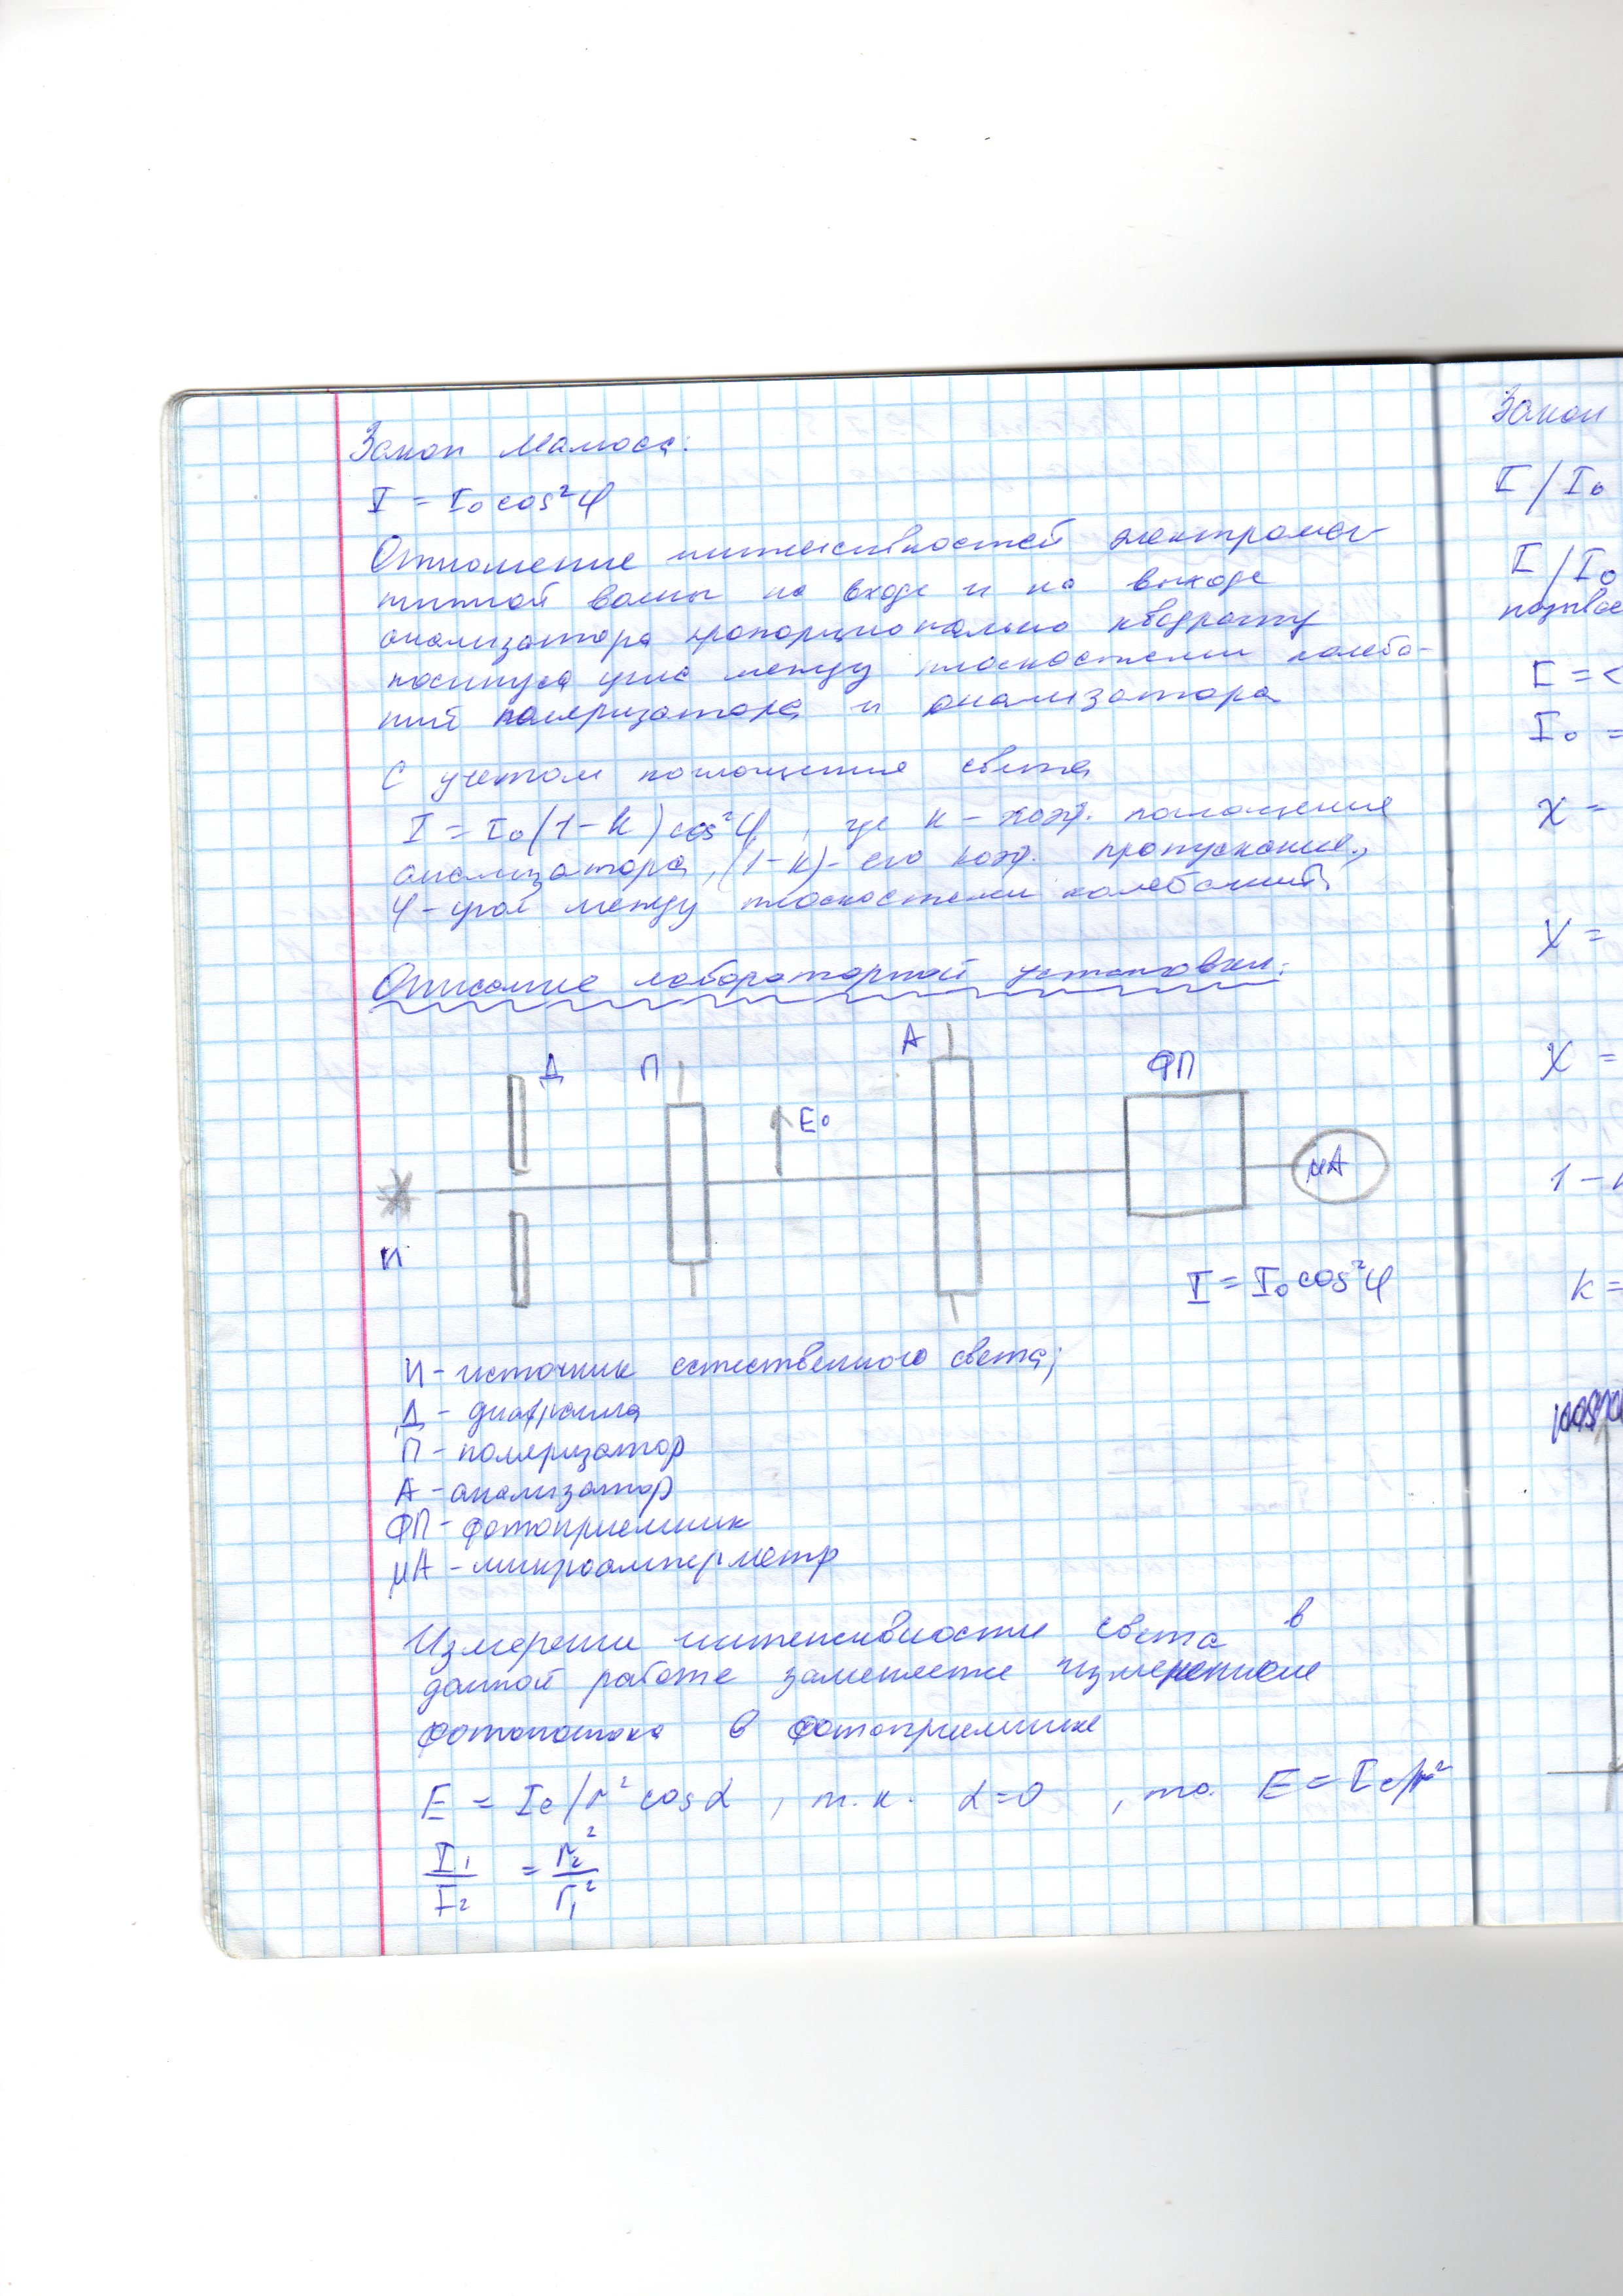 Закон Малюса:
I = I₀ cos²φ
Отношение интенсивностей электромаг-
нитной волны на входе и на выходе
анализатора пропорционально квадрату
косинуса угла между плоскостями колеба-
ний поляризатора и анализатора
С учетом поглощения света
I = I₀(1-k)cos²φ, где k - коэф. поглощения
анализатора, (1-k) - его коэф. пропускания,
φ - угол между плоскостями колебаний
Описание лабораторной установки:
Д П А ФП
E₀
μA
И
I = I₀ cos²φ
И - источник естественного света;
Д - диафрагма
П - поляризатор
А - анализатор
ФП - фотоприемник
μA - микроамперметр
Измерении интенсивности света в
данной работе заменяется измерением
фототока в фотоприемнике
E = Ic/r² cosα, т.к. α=0, то. E = Ic/r²
I₁/I₂ = r₂²/r₁²
Закон
I/I₀
I/I₀
I = <
I₀ =
X =
X =
X =
1 -
k =